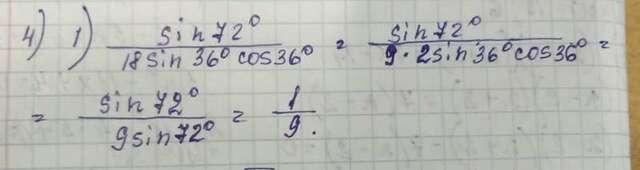 4) 1) sin72° / 18sin36°cos36° = sin72° / 9·2sin36°cos36° =
= sin72° / 9sin72° = 1/9.